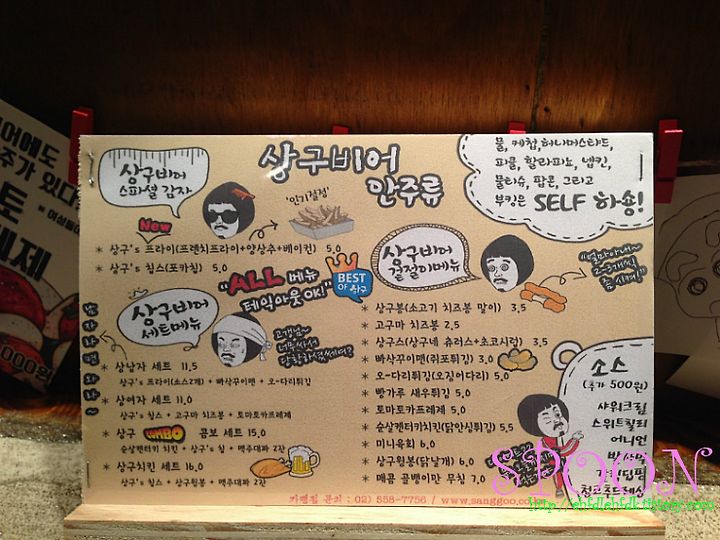 상구비어
안주류
상구비어
스파셜 감자
'인기절정'
New
* 상구's 프라이(프렌치프라이+양상추+베이컨) 5.0
* 상구's 칩스(포카칩) 5.0
물, 케첩, 허니머스타드,
피클, 할라피뇨, 냅킨,
물티슈, 팝콘, 그리고
부킹은 SELF 하숑!
"ALL 메뉴
테익아웃OK!"
BEST
OF 상구
상구비어
세트메뉴
고객님~
너무싸서
당황하셨쎄여?
* 상남자 세트 11.5
상구's 프라이(소스2개) + 빠삭꾸이맨 + 오-다리튀김
* 상여자 세트 11.0
상구's 칩스 + 고구마 치즈봉 + 토마토카프레제
* 상구 COMBO 콤보 세트 15.0
순살켄터키 치킨 + 상구's 칩 + 맥주대짜 2잔
* 상구치킨 세트 16.0
상구's 칩스 + 상구윙봉 + 맥주대짜 2잔
상구비어
겉절미메뉴
"얼마아내~
2~3개씩
좀 시켜!"
* 상구봉(소고기 치즈봉 말이) 3.5
* 고구마 치즈봉 2.5
* 상구스(상구네 츄러스+초코시럽) 3.5
* 빠삭꾸이맨(쥐포튀김) 3.0
* 오-다리튀김(오징어다리) 5.0
* 빵가루 새우튀김 5.0
* 토마토카프레제 5.0
* 순살켄터키치킨(닭안심튀김) 5.5
* 미니육회 6.0
* 상구윙봉(닭날개) 6.0
* 매콤 골뱅이만 무침 7.0
소스
(추가 500원)
샤워크림
스위트칠리
어니언
가맹점 문의 : 02) 558-7756 / www.sanggoo.co
SPOON
어에도
주가 있다